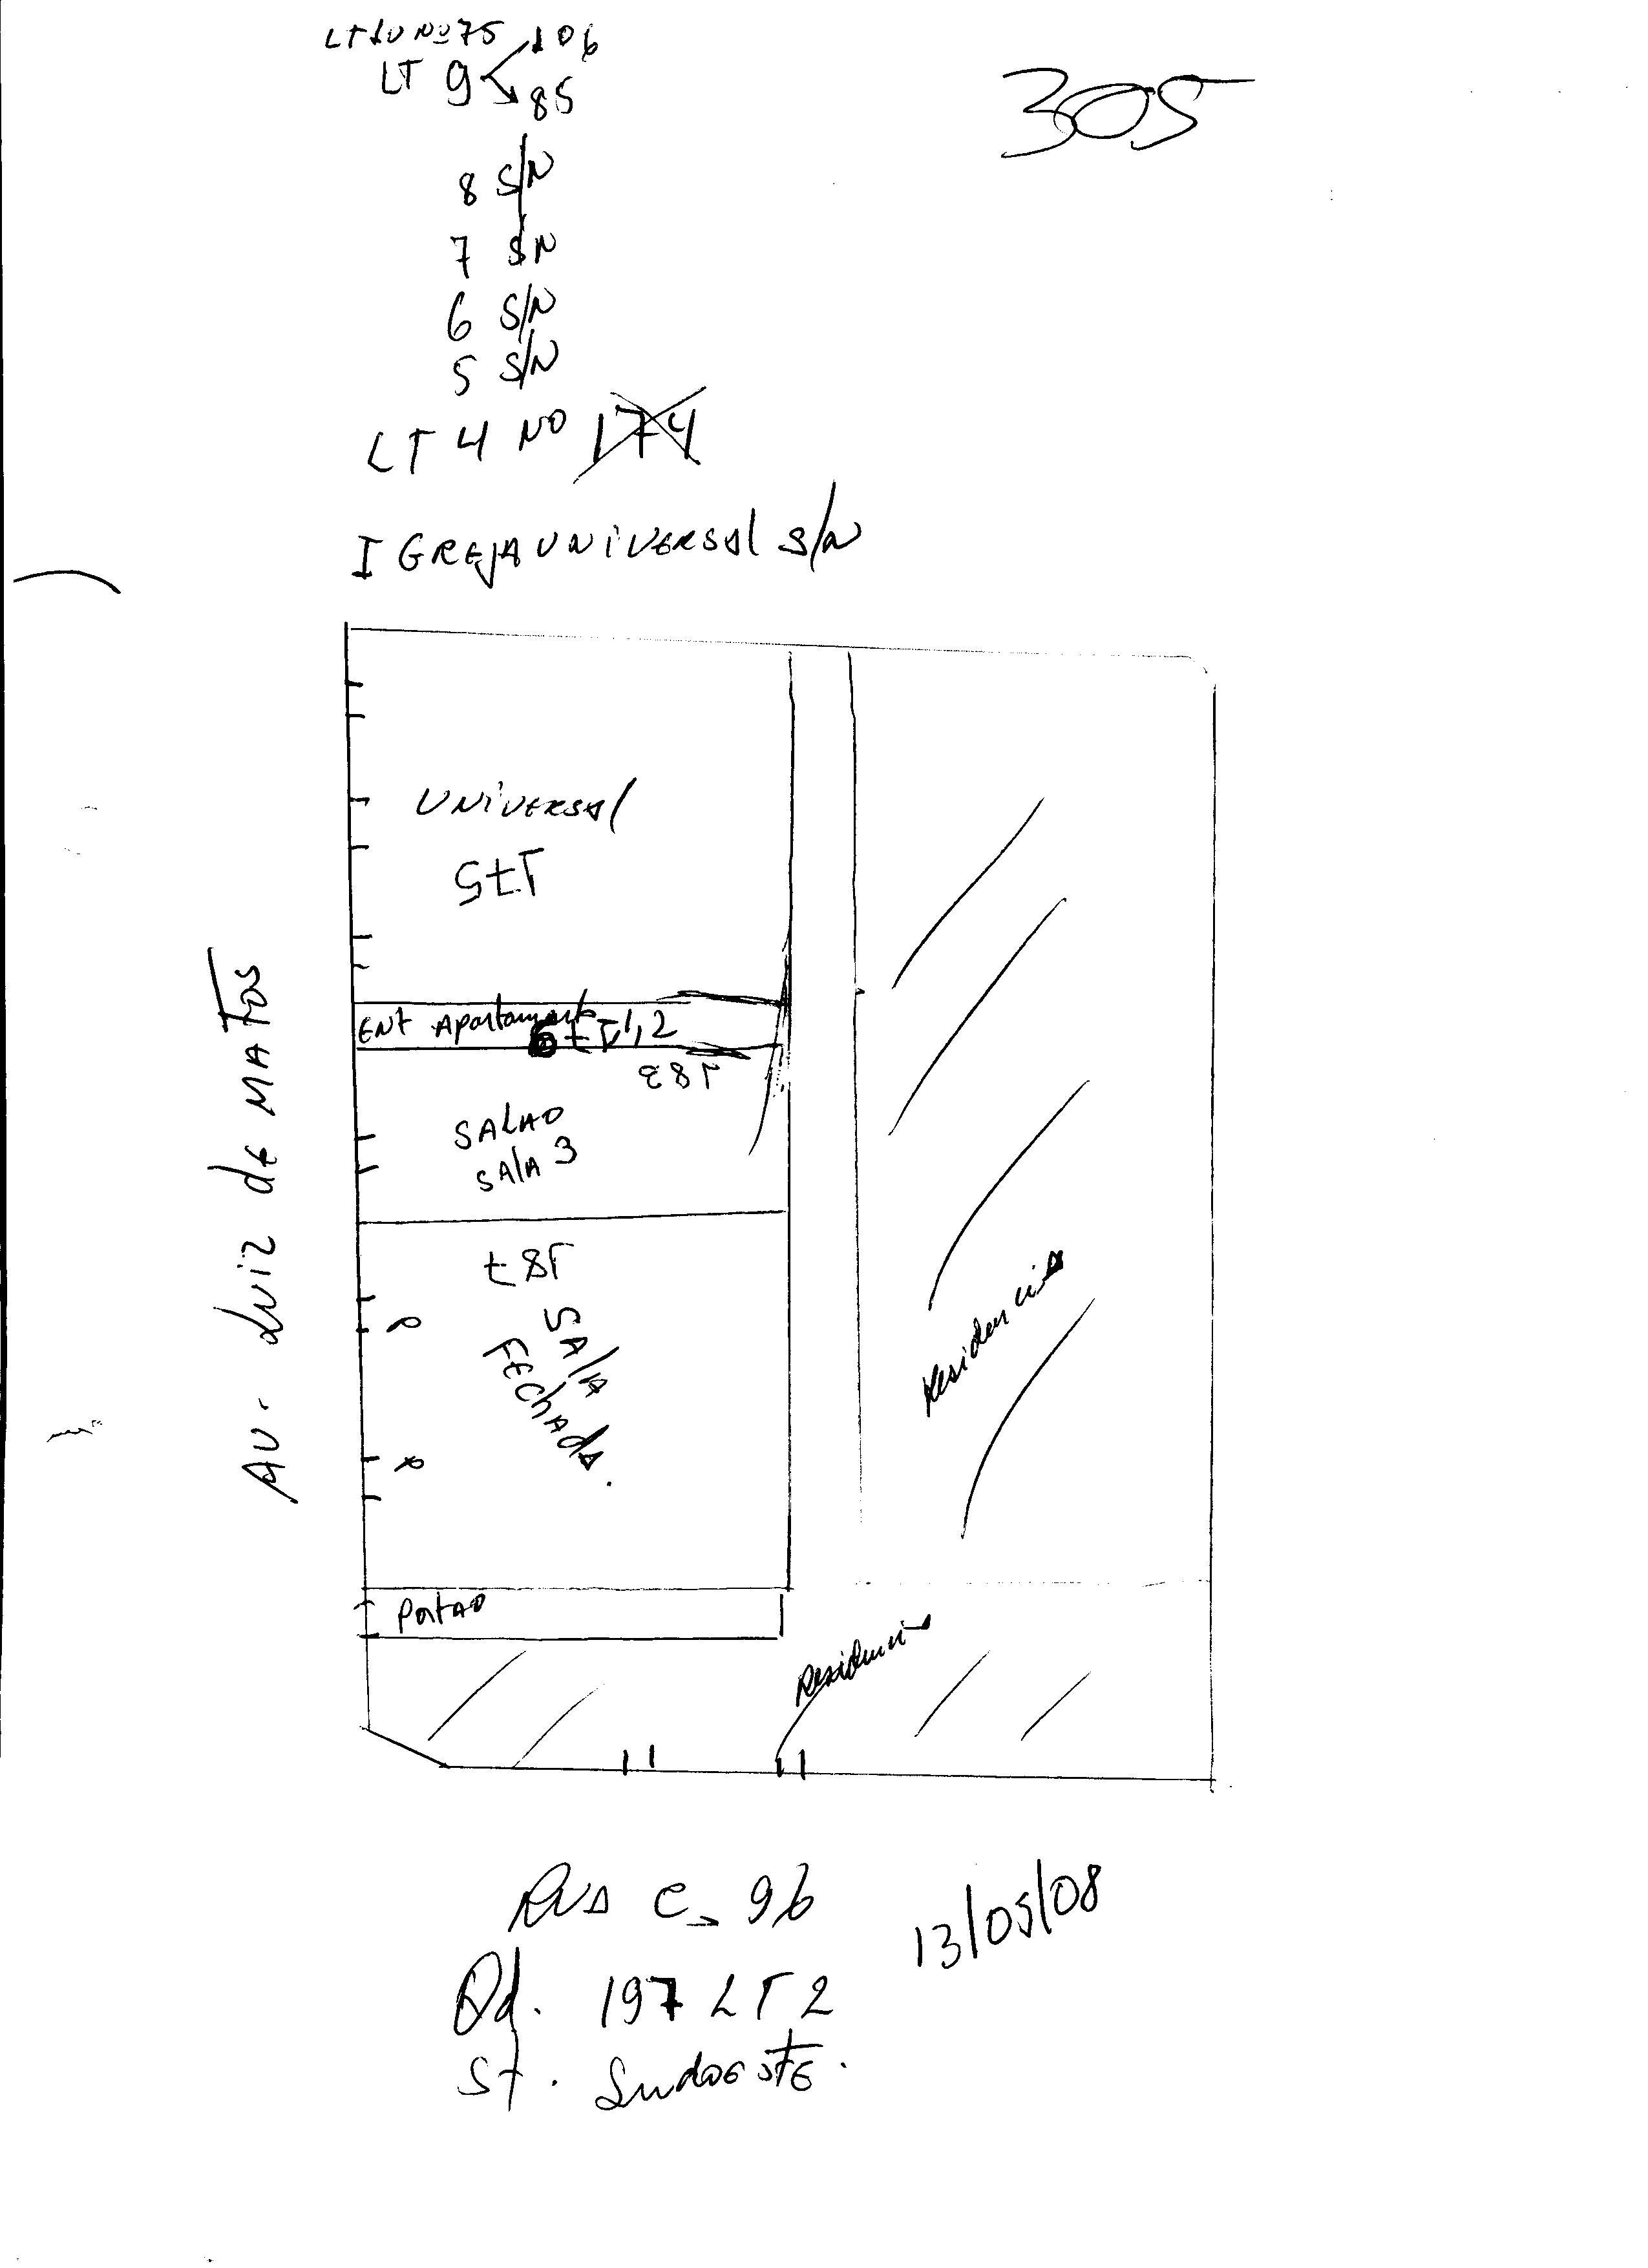 LT 10 Nº 75
106
LT 9
85
305
8 S/N
7 S/N
6 S/N
5 S/N
LT 4 Nº 174
IGREJA UNIVERSAL S/N
UNIVERSAL
175
ENT Apartamento 1, 2
183
SALAO
SALA 3
187
SALA
FEChAdA.
Portao
AV. Luiz de MATOS
Residencia
Residencia
RUA C-96
13/05/08
Qd. 197 LT 2
St. SudoeSTE.